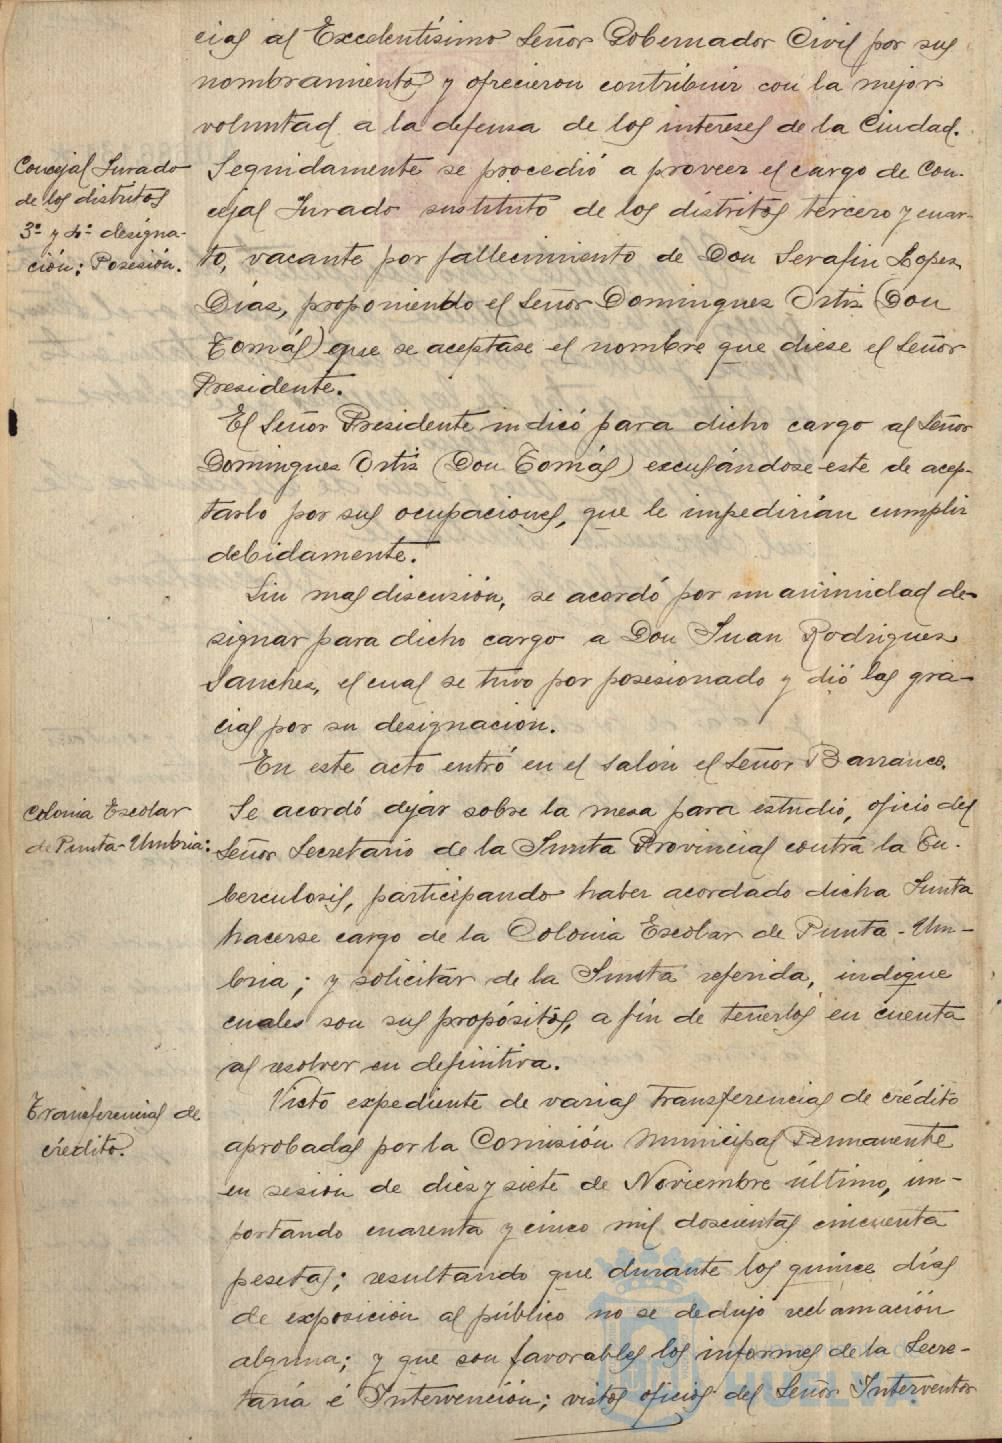 cias al Excelentísimo Señor Gobernador Civil por sus
nombramientos y ofrecieron contribuir con la mejor
voluntad a la defensa de los intereses de la Ciudad.
Concejal Jurado
de los distritos
3º y 4º designa-
ción; Posesión.
Seguidamente se procedió a proveer el cargo de Con-
cejal Jurado sustituto de los distritos tercero y cuar-
to, vacante por fallecimiento de Don Serafin Lopez
Días, proponiendo el Señor Dominguez Ortiz (Don
Tomás) que se aceptase el nombre que diese el Señor
Presidente.
El Señor Presidente indicó para dicho cargo al Señor
Dominguez Ortiz (Don Tomás) excusándose este de acep-
tarlo por sus ocupaciones, que le impedirían cumplir
debidamente.
Sin mas discusión, se acordó por unanimidad de-
signar para dicho cargo a Don Juan Rodriguez
Sanchez, el cual se tuvo por posesionado y dió las gra-
cias por su designación.
En este acto entró en el salón el Señor Barranco.
Colonia Escolar
de Punta-Umbria:
Se acordó dejar sobre la mesa para estudio, oficio del
Señor Secretario de la Junta Provincial contra la Tu-
berculosis, participando haber acordado dicha Junta
hacerse cargo de la Colonia Escolar de Punta-Um-
bria; y solicitar de la Junta referida, indique
cuales son sus propósitos, a fín de tenerlos en cuenta
al resolver en definitiva.
Transferencias de
crédito.
Visto expediente de varias transferencias de crédito
aprobadas por la Comisión Municipal Permanente
en sesión de diez y siete de Noviembre último, im-
portando cuarenta y cinco mil doscientas cincuenta
pesetas; resultando que durante los quince días
de exposición al público no se dedujo reclamación
alguna; y que son favorables los informes de la Secre-
taría é Intervención; vistos oficios del Señor Interventor
HUELVA